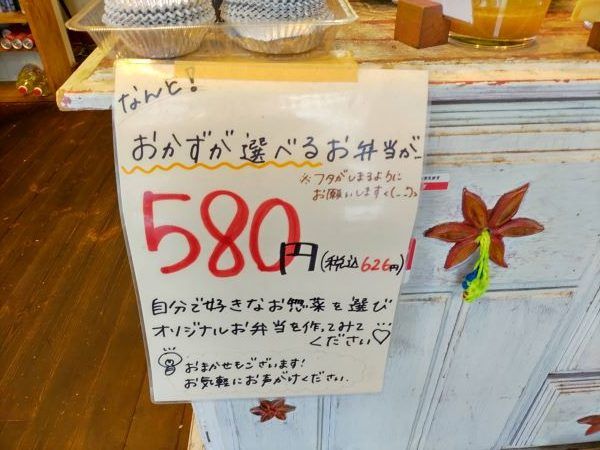 なんと!
おかずが選べるお弁当が…
※フタがしまるように
お願いしますく(._.)>
580円(税込626円)!
自分で好きなお惣菜を選び
オリジナルお弁当を作ってみて
ください♡
おまかせもございます!
お気軽にお声がけください.